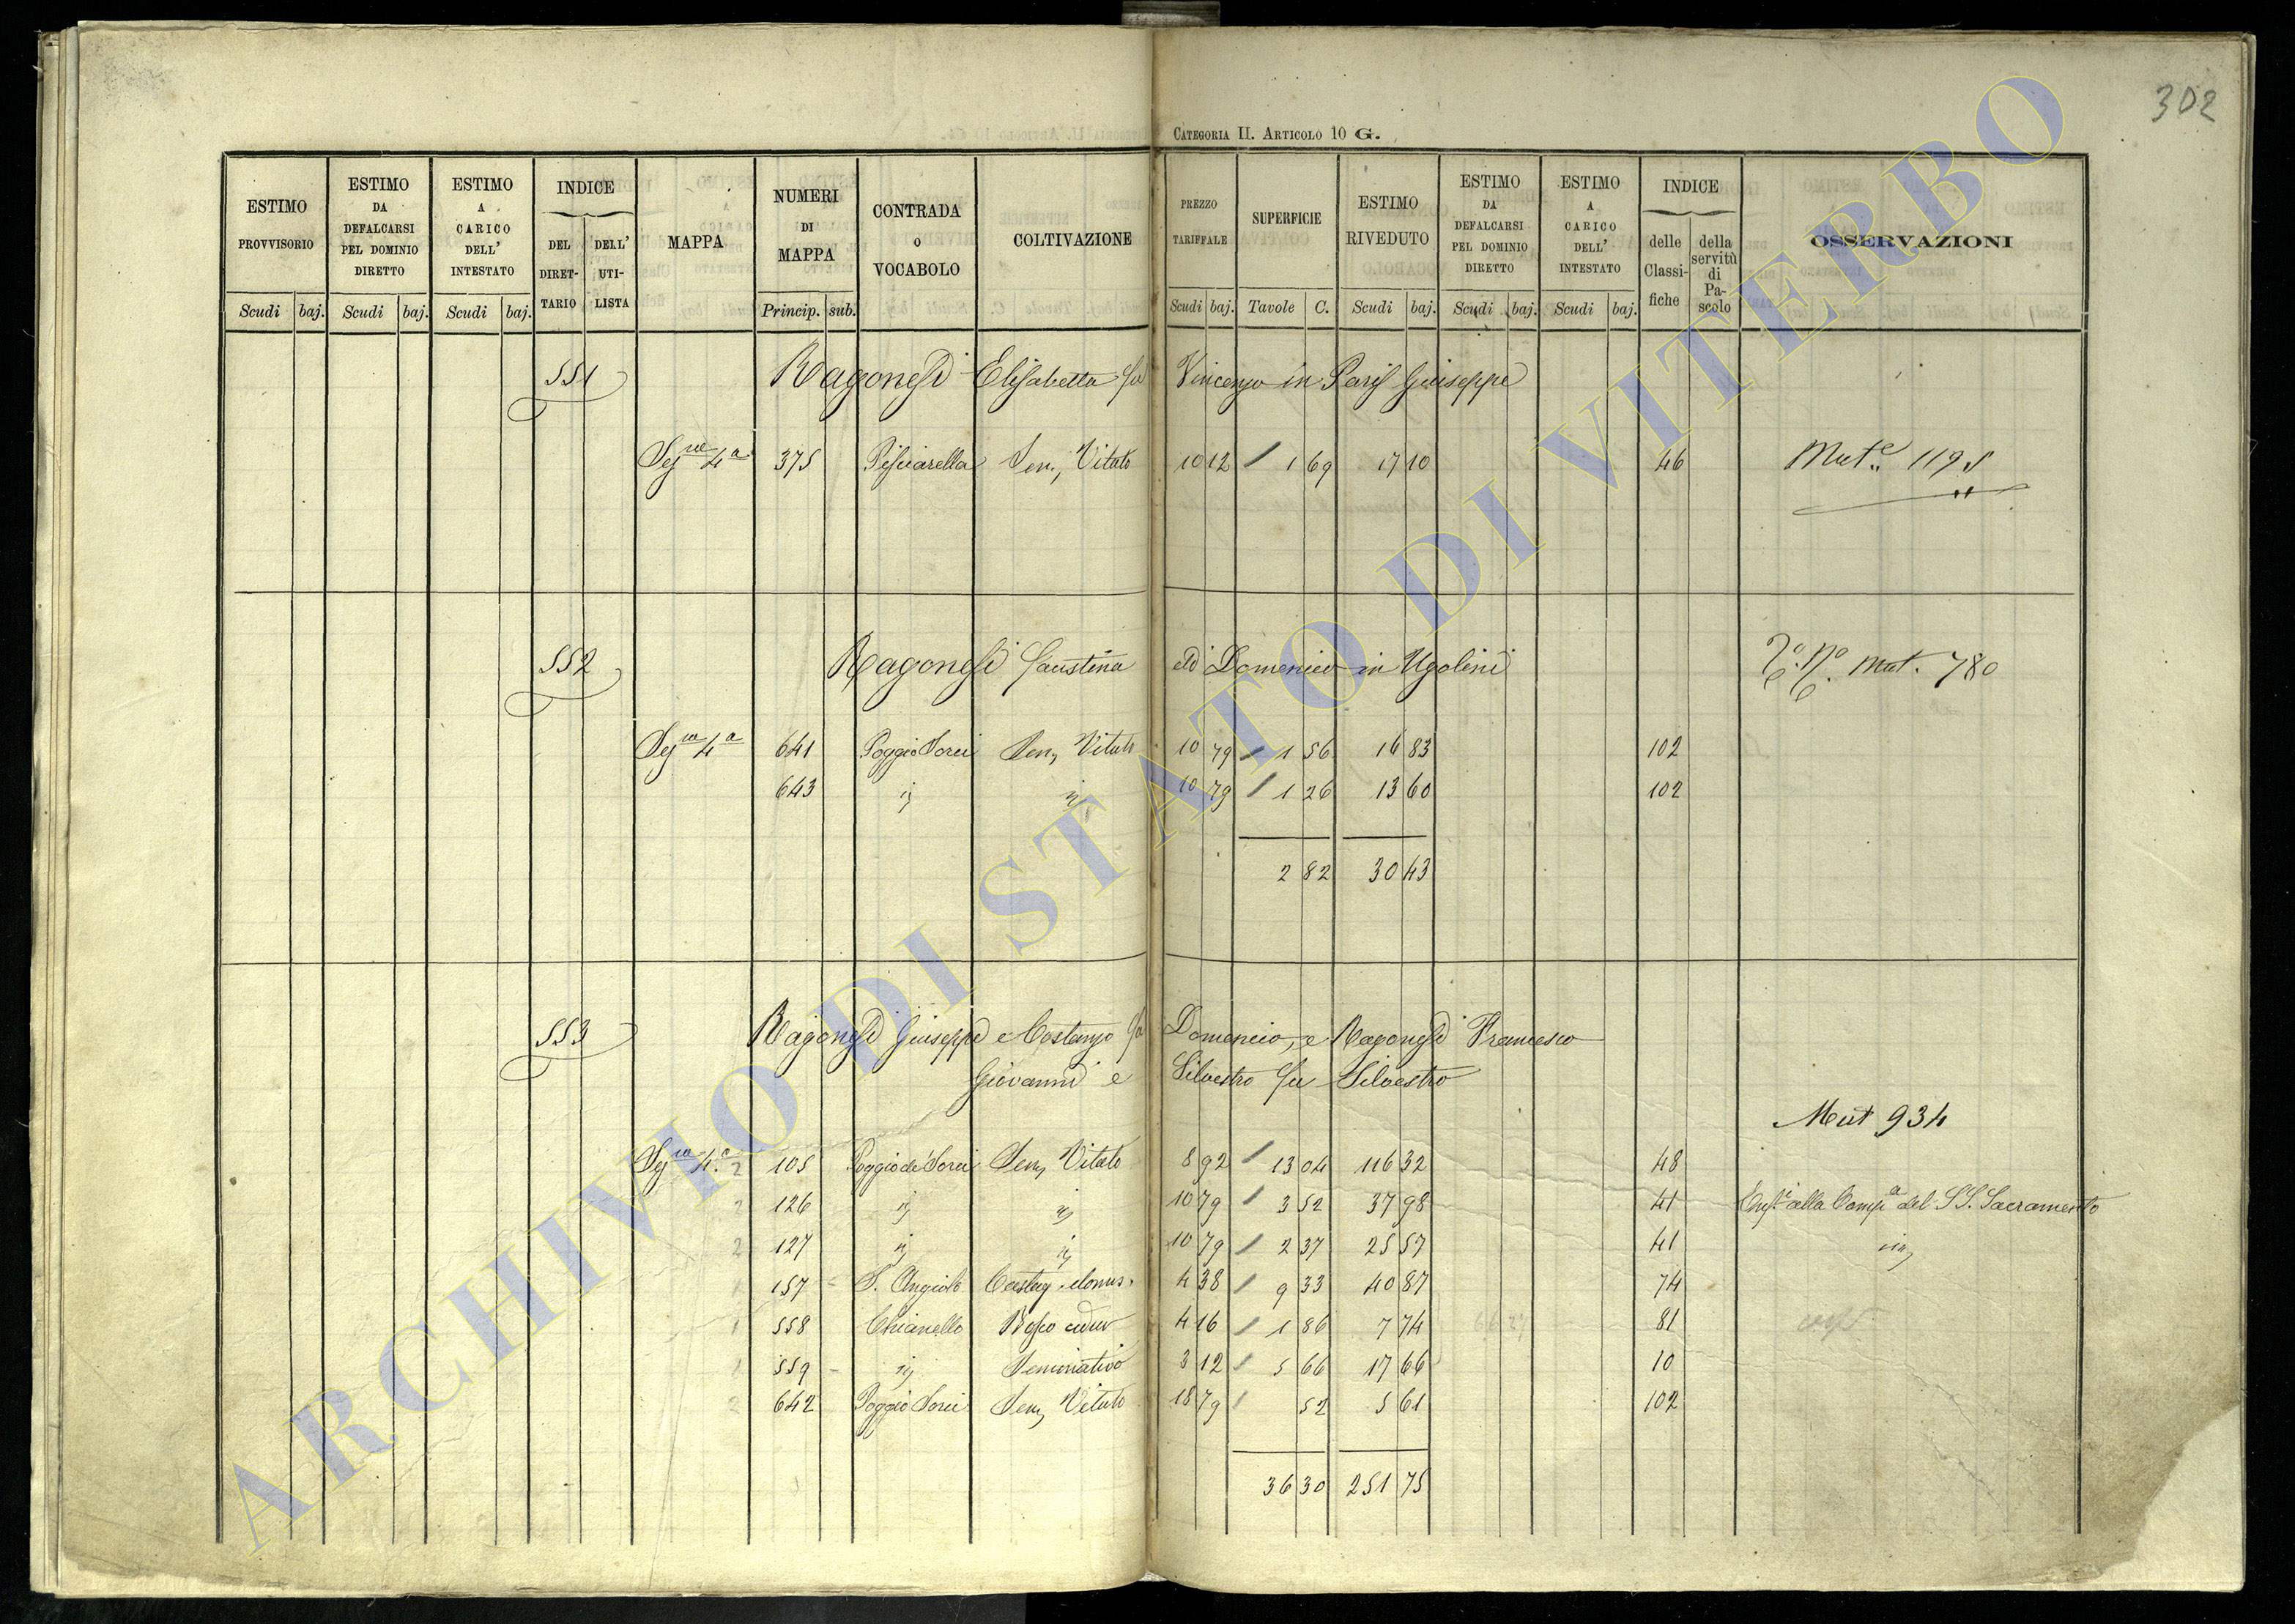 302
CATEGORIA II. ARTICOLO 10 G.
ESTIMO PROVVISORIO | ESTIMO DA DEFALCARSI PEL DOMINIO DIRETTO | ESTIMO A CARICO DELL' INTESTATO | INDICE DEL DIRET-TARIO | DELL' UTI-LISTA | MAPPA | NUMERI DI MAPPA | CONTRADA O VOCABOLO | COLTIVAZIONE | PREZZO TARIFFALE | SUPERFICIE | ESTIMO RIVEDUTO | ESTIMO DA DEFALCARSI PEL DOMINIO DIRETTO | ESTIMO A CARICO DELL' INTESTATO | INDICE delle Classi-fiche | della servitù di Pa-scolo | OSSERVAZIONI
Scudi | baj. | Scudi | baj. | Scudi | baj. | Princip. | sub. | Scudi | baj. | Tavole | C. | Scudi | baj. | Scudi | baj. | Scudi | baj.
551 Ragonesi Elisabetta fu Vincenzo in Paris Giuseppe
Seg.ne 4a 375 Pisciarella Sem. Vitato 10 12 / 1 69 17 10 46 Mut.e 119
552 Ragonesi Faustina di Domenico in Ugolini Mut. 780
Seg.ne 4a 641 Poggio Sorci Sem. Vitato 10 79 / 1 56 16 83 102
643 id id 10 79 / 1 26 13 60 102
2 82 30 43
553 Ragonesi Giuseppe e Costanzo fu Domenico, e Ragonesi Francesco
Giovanni e Silvestro fu Silvestro
Mut 934
Seg.ne 4.a 2 105 Poggio de' Sorci Sem. Vitato 8 92 / 13 04 116 32 48
2 126 id id 10 79 / 3 52 37 98 41 alla Comp.a del SS. Sacramento
2 127 id id 10 79 / 2 37 25 57 41 id
1 157 S. Angiolo Castag. 4 38 / 9 33 40 87 74
1 558 Chianello Bosco ceduo 4 16 / 1 86 7 74 81
1 559 id Seminativo 3 12 / 5 66 17 66 10
2 642 Poggio Sorci Sem. Vitato 10 79 / 52 5 61 102
36 30 251 75
ARCHIVIO DI STATO DI VITERBO